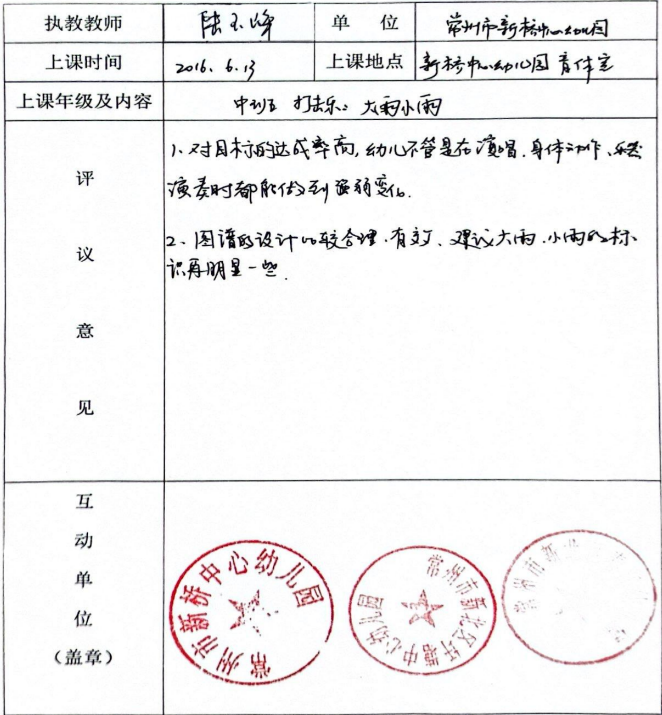 执教教师 陆玉峰 单位 常州市新桥中心幼儿园
上课时间 2016. 6.13 上课地点 新桥中心幼儿园 音体室
上课年级及内容 中班 打击乐：大雨小雨
评议意见
1、对目标的达成率高，幼儿不管是在演唱、身体动作、乐器
演奏时都能做到强弱变化.
2、图谱的设计比较合理、有效、建议大雨、小雨的标
识再明显一些.
互动单位（盖章）
常州市新桥中心幼儿园
常州市新北区 中心幼儿园
常州市新